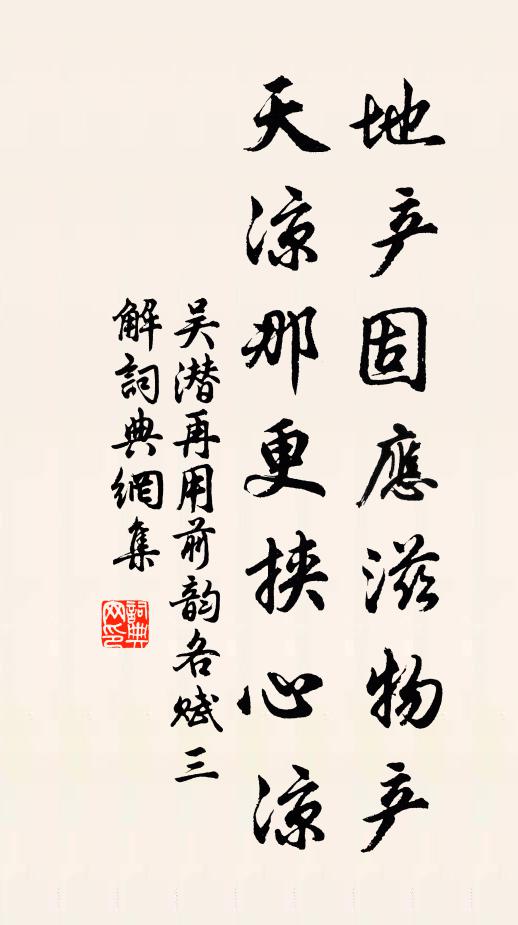 地产固應滋物产
天涼那更挾心涼
吴潛再用前韵各赋三
解詞典網集
詞典网印